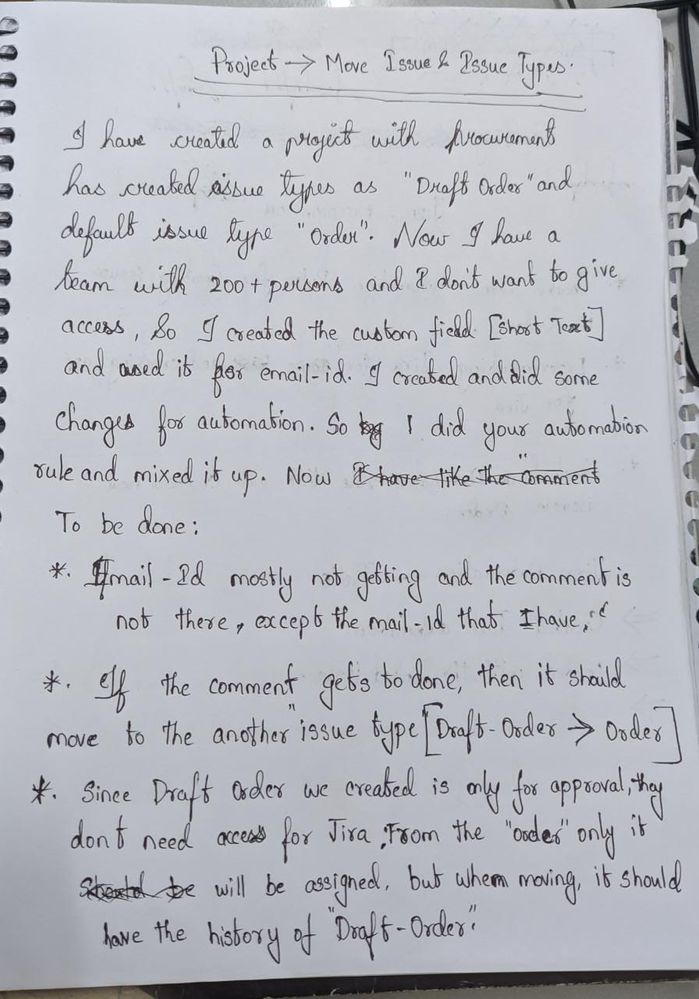 Project → Move Issue & Issue Types.
I have created a project with Procurement
has created issue types as "Draft Order" and
default issue type "Order". Now I have a
team with 200+ persons and I don't want to give
access, So I created the custom field [Short Text]
and used it for email-id. I created and did some
changes for automation. So I did your automation
rule and mixed it up. Now I have like the "comment
To be done:
*. Email-Id mostly not getting and the comment is
not there, except the mail-id that I have,
*. If the comment gets to done, then it should
move to the another "issue type [Draft-Order → Order]
*. Since Draft Order we created is only for approval, they
don't need access for Jira, From the "order" only it
Should be will be assigned, but when moving, it should
have the history of "Draft-Order".